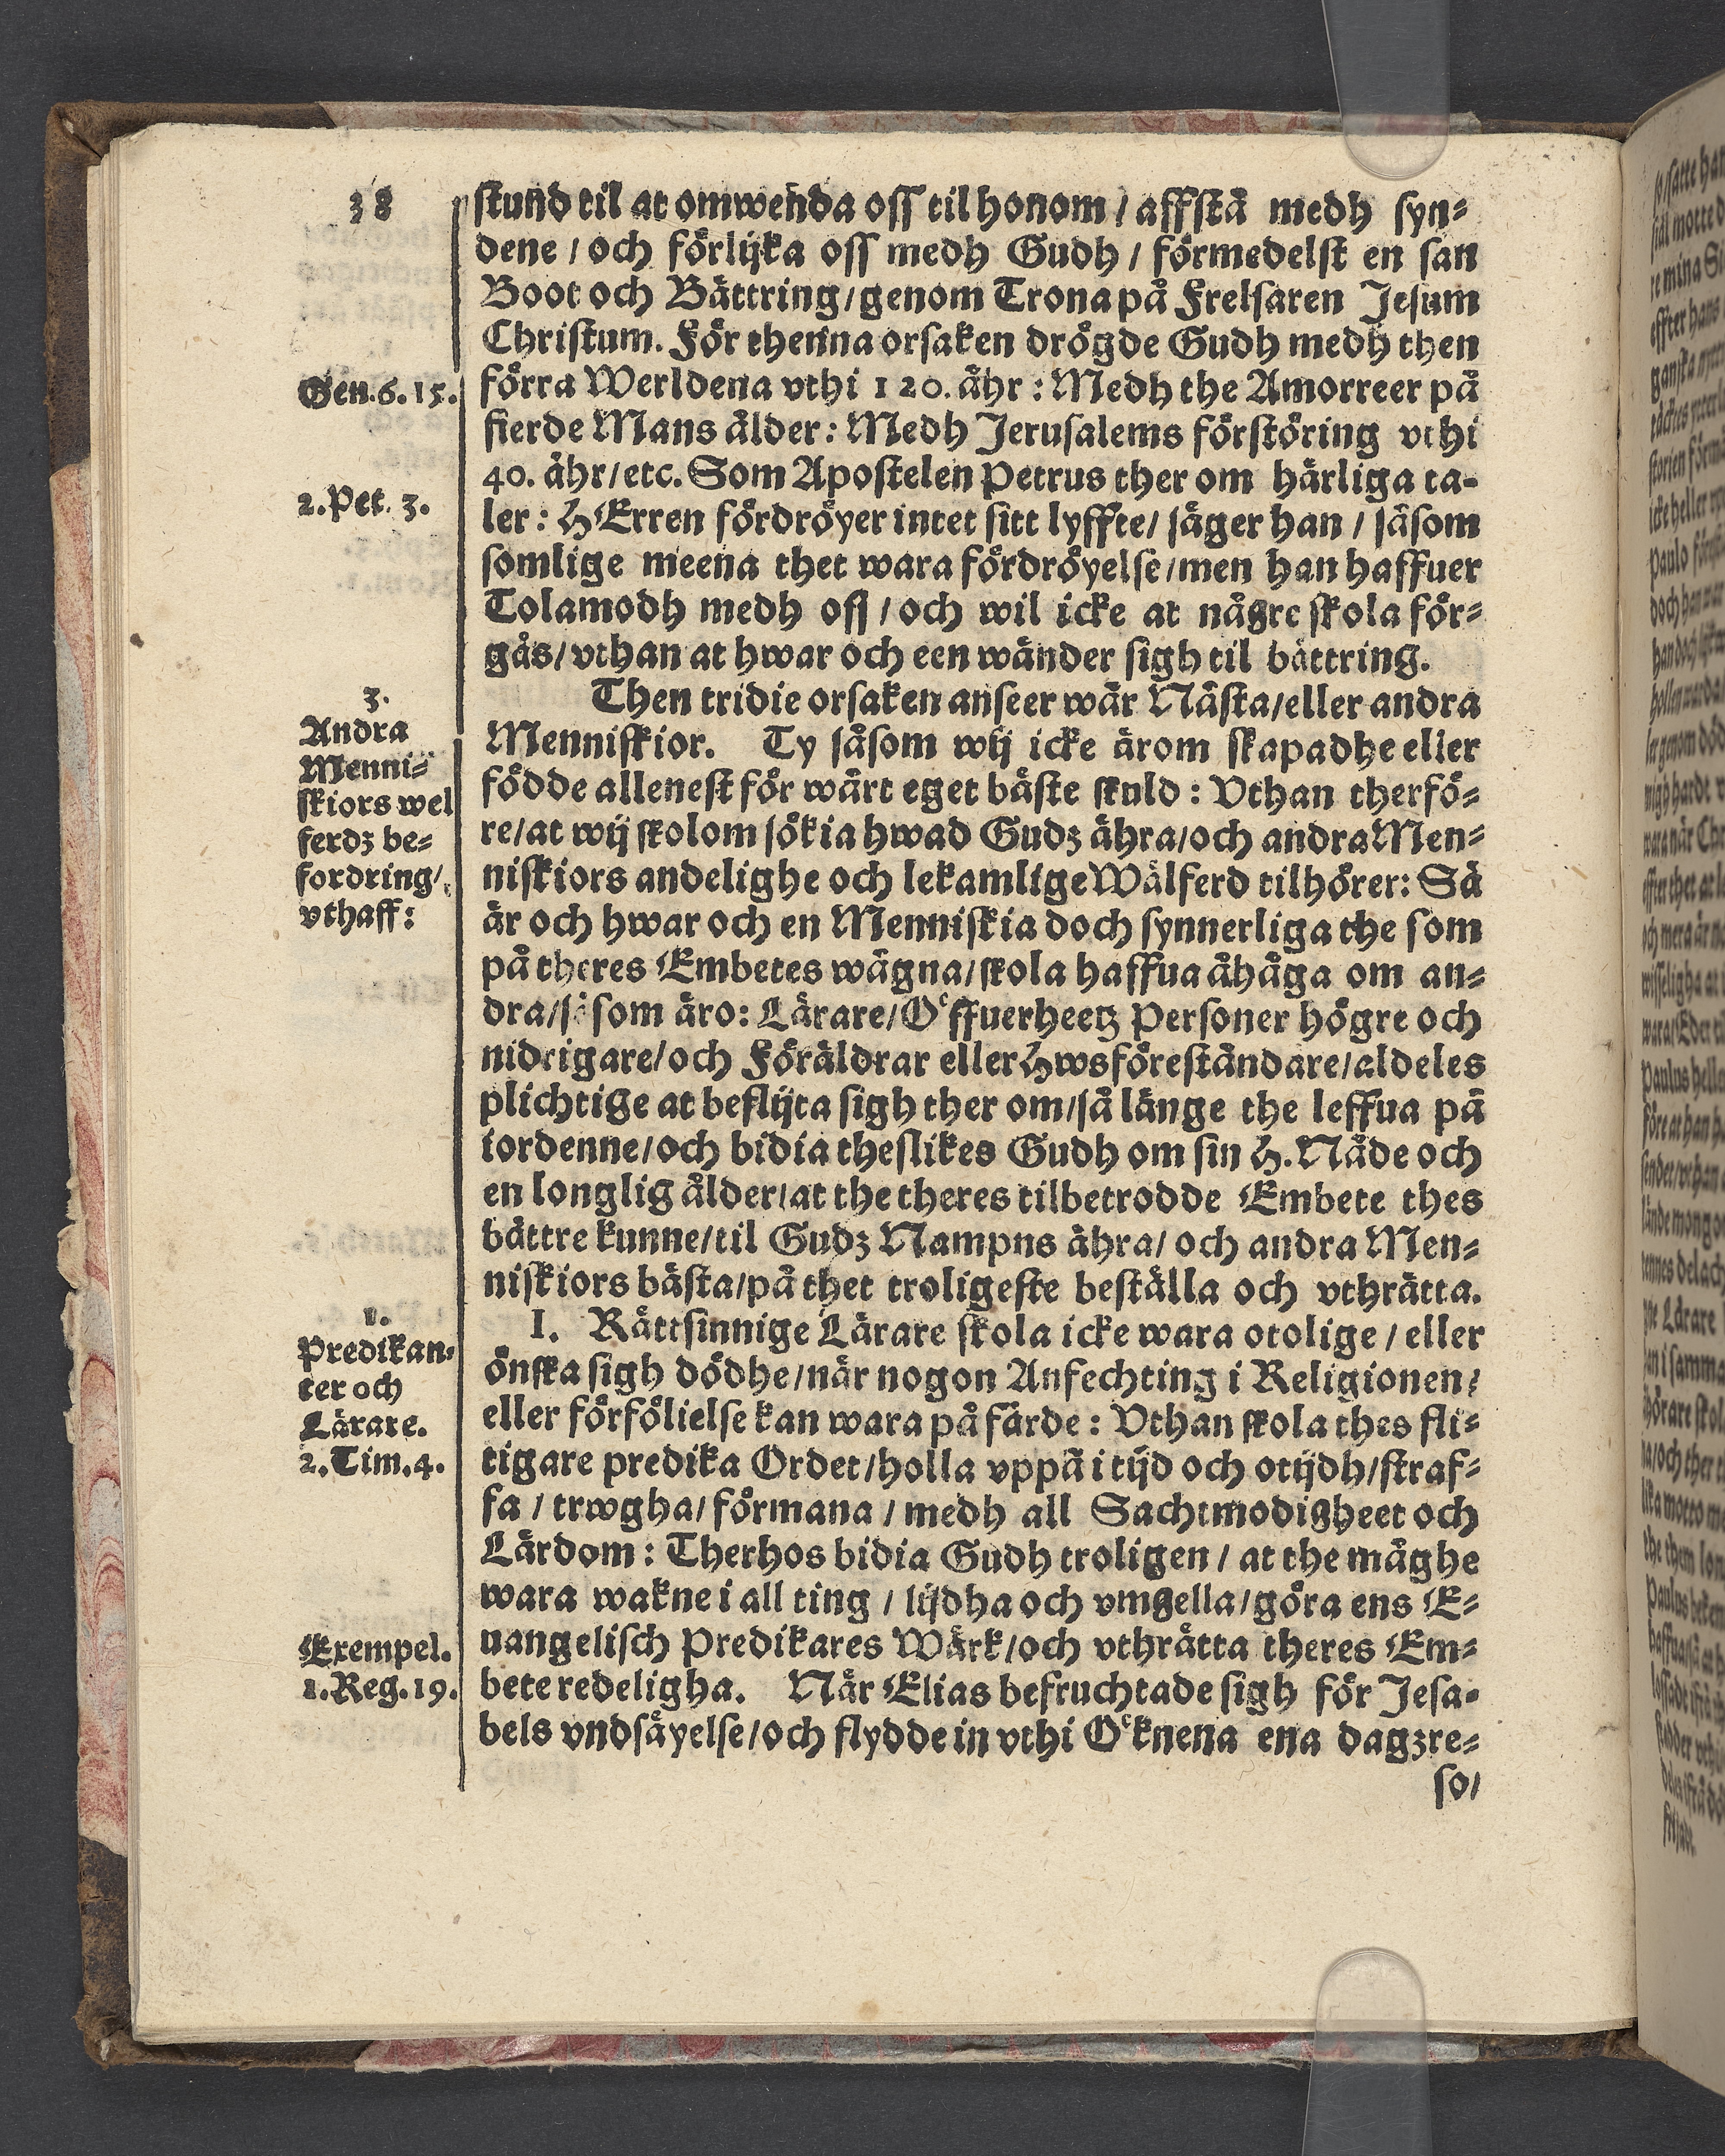 38
stund til at omwenda oss til honom / affstå medh syn⸗
dene / och förlijka oss medh Gudh / förmedelst en san
Boot och Bättring / genom Trona på Frelsaren Jesum
Christum. För thenna orsaken drögde Gudh medh then
Gen. 6. 15.
förra Werldena vthi 120. åhr : Medh the Amorreer på
fierde Mans ålder : Medh Jerusalems förstöring vthi
40. åhr / etc. Som Apostelen Petrus ther om härliga ta⸗
2. Pet. 3.
ler : HErren fördröyer intet sitt lyffte / säger han / såsom
somlige meena thet wara fördröyelse / men han haffuer
Tolamodh medh oss / och wil icke at någre skola för⸗
gås / vthan at hwar och een wänder sigh til bättring.
3.
Andra
Menni⸗
skiors wel
ferdz be⸗
fordring /
vthaff :
Then tridie orsaken anseer wår Nästa / eller andra
Menniskior. Ty såsom wij icke ärom skapadhe eller
födde allenest för wårt eget bäste skuld : Vthan therfö⸗
re / at wij skolom sökia hwad Gudz ähra / och andra Men⸗
niskiors andelighe och lekamlige Wälferd tilhörer : Så
är och hwar och en Menniskia doch synnerliga the som
på theres Embetes wägna / skola haffua åhåga om an⸗
dra / såsom äro : Lärare / Öffuerheetz Personer högre och
nidrigare / och Föräldrar eller Hwsföreståndare / aldeles
plichtige at beflijta sigh ther om / så länge the leffua på
iordenne / och bidia theslikes Gudh om sin H. Nåde och
en longlig ålder / at the theres tilbetrodde Embete thes
bättre kunne / til Gudz Nampns ähra / och andra Men⸗
niskiors bästa / på thet troligeste beställa och vthrätta.
1.
Predikan⸗
ter och
Lärare.
2. Tim. 4.
I. Rättsinnige Lärare skola icke wara otolige / eller
önska sigh dödhe / när nogon Anfechting i Religionen /
eller förfölielse kan wara på färde : Vthan skola thes fli⸗
tigare predika Ordet / holla vppå i tijd och otijdh / straf⸗
fa / trwgha / förmana / medh all Sachtmodigheet och
Lärdom : Therhos bidia Gudh troligen / at the måghe
wara wakne i all ting / lijdha och vmgella / göra ens E⸗
Exempel.
1. Reg. 19.
uangelisch Predikares Wärk / och vthrätta theres Em⸗
bete redeligha. När Elias befruchtade sigh för Jesa⸗
bels vndsäyelse / och flydde in vthi Öknena ena dagzre⸗
so /